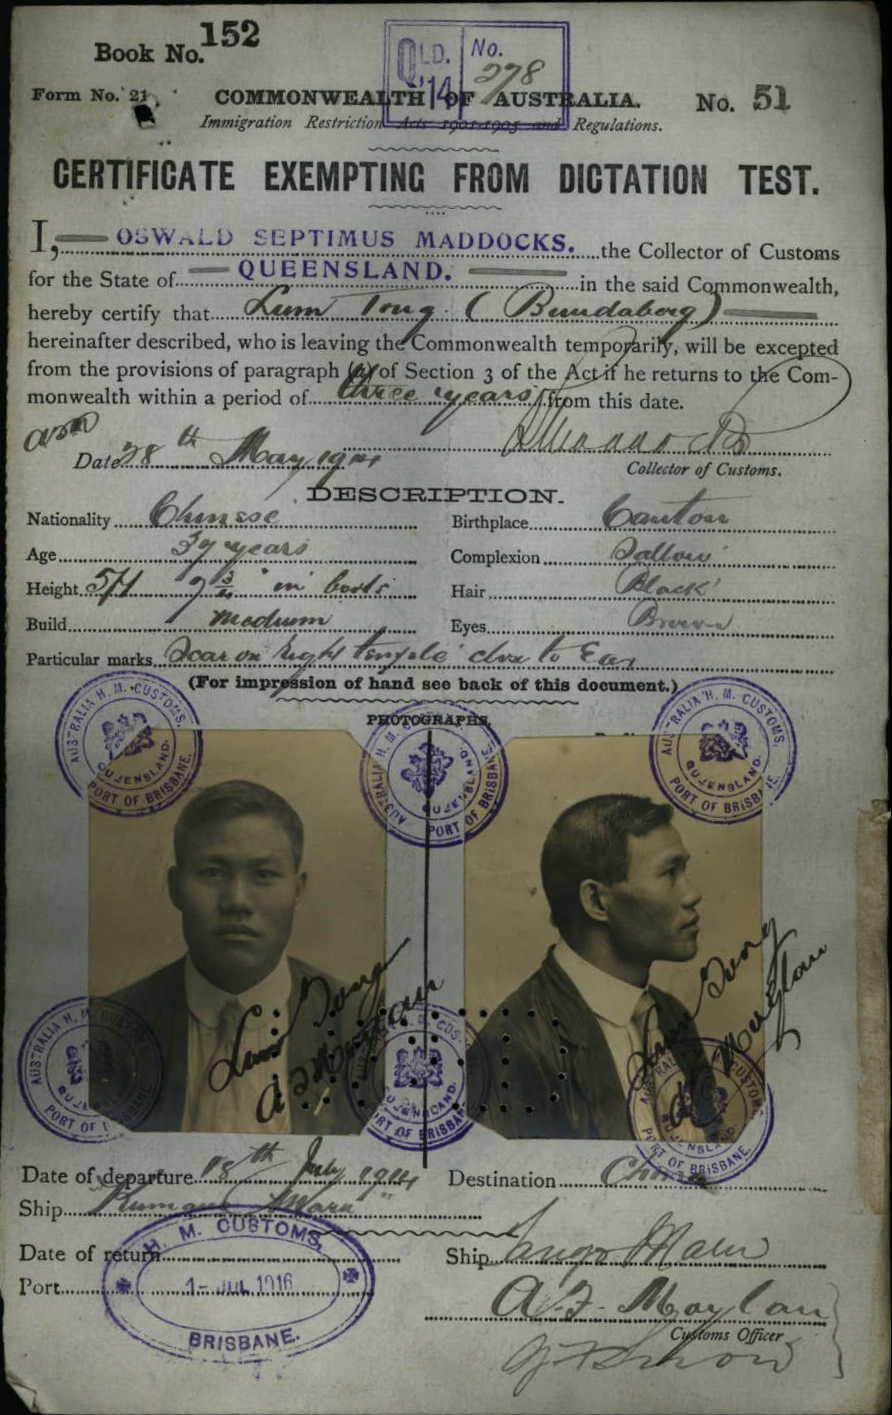 Book No. 152
QLD. No.
'14 278
Form No. 21. COMMONWEALTH OF AUSTRALIA. No. 51
Immigration Restriction Acts 1901-1905 and Regulations.
CERTIFICATE EXEMPTING FROM DICTATION TEST.
I, OSWALD SEPTIMUS MADDOCKS. the Collector of Customs
for the State of QUEENSLAND. in the said Commonwealth,
hereby certify that Lum Tong (Bundaberg)
hereinafter described, who is leaving the Commonwealth temporarily, will be excepted
from the provisions of paragraph (a) of Section 3 of the Act if he returns to the Com-
monwealth within a period of three years from this date.
Date 28th May 1914
Collector of Customs.
DESCRIPTION.
Nationality Chinese Birthplace Canton
Age 39 years Complexion Sallow
Height 5ft in boots Hair Black
Build Medium Eyes Brown
Particular marks Scar on right temple close to Ear
(For impression of hand see back of this document.)
PHOTOGRAPHS.
AUSTRALIA H. M. CUSTOMS. QUEENSLAND. PORT OF BRISBANE.
AUSTRALIA H. M. CUSTOMS QUEENSLAND. PORT OF BRISBANE
AUSTRALIA H. M. CUSTOMS QUEENSLAND. PORT OF BRISBANE.
Lum Tong
Lum Tong
Date of departure 18th July 1914 Destination China
Ship Kumano Maru
Date of return Ship Tango Maru
Port
H. M. CUSTOMS,
1- JUL 1916
BRISBANE.
Customs Officer